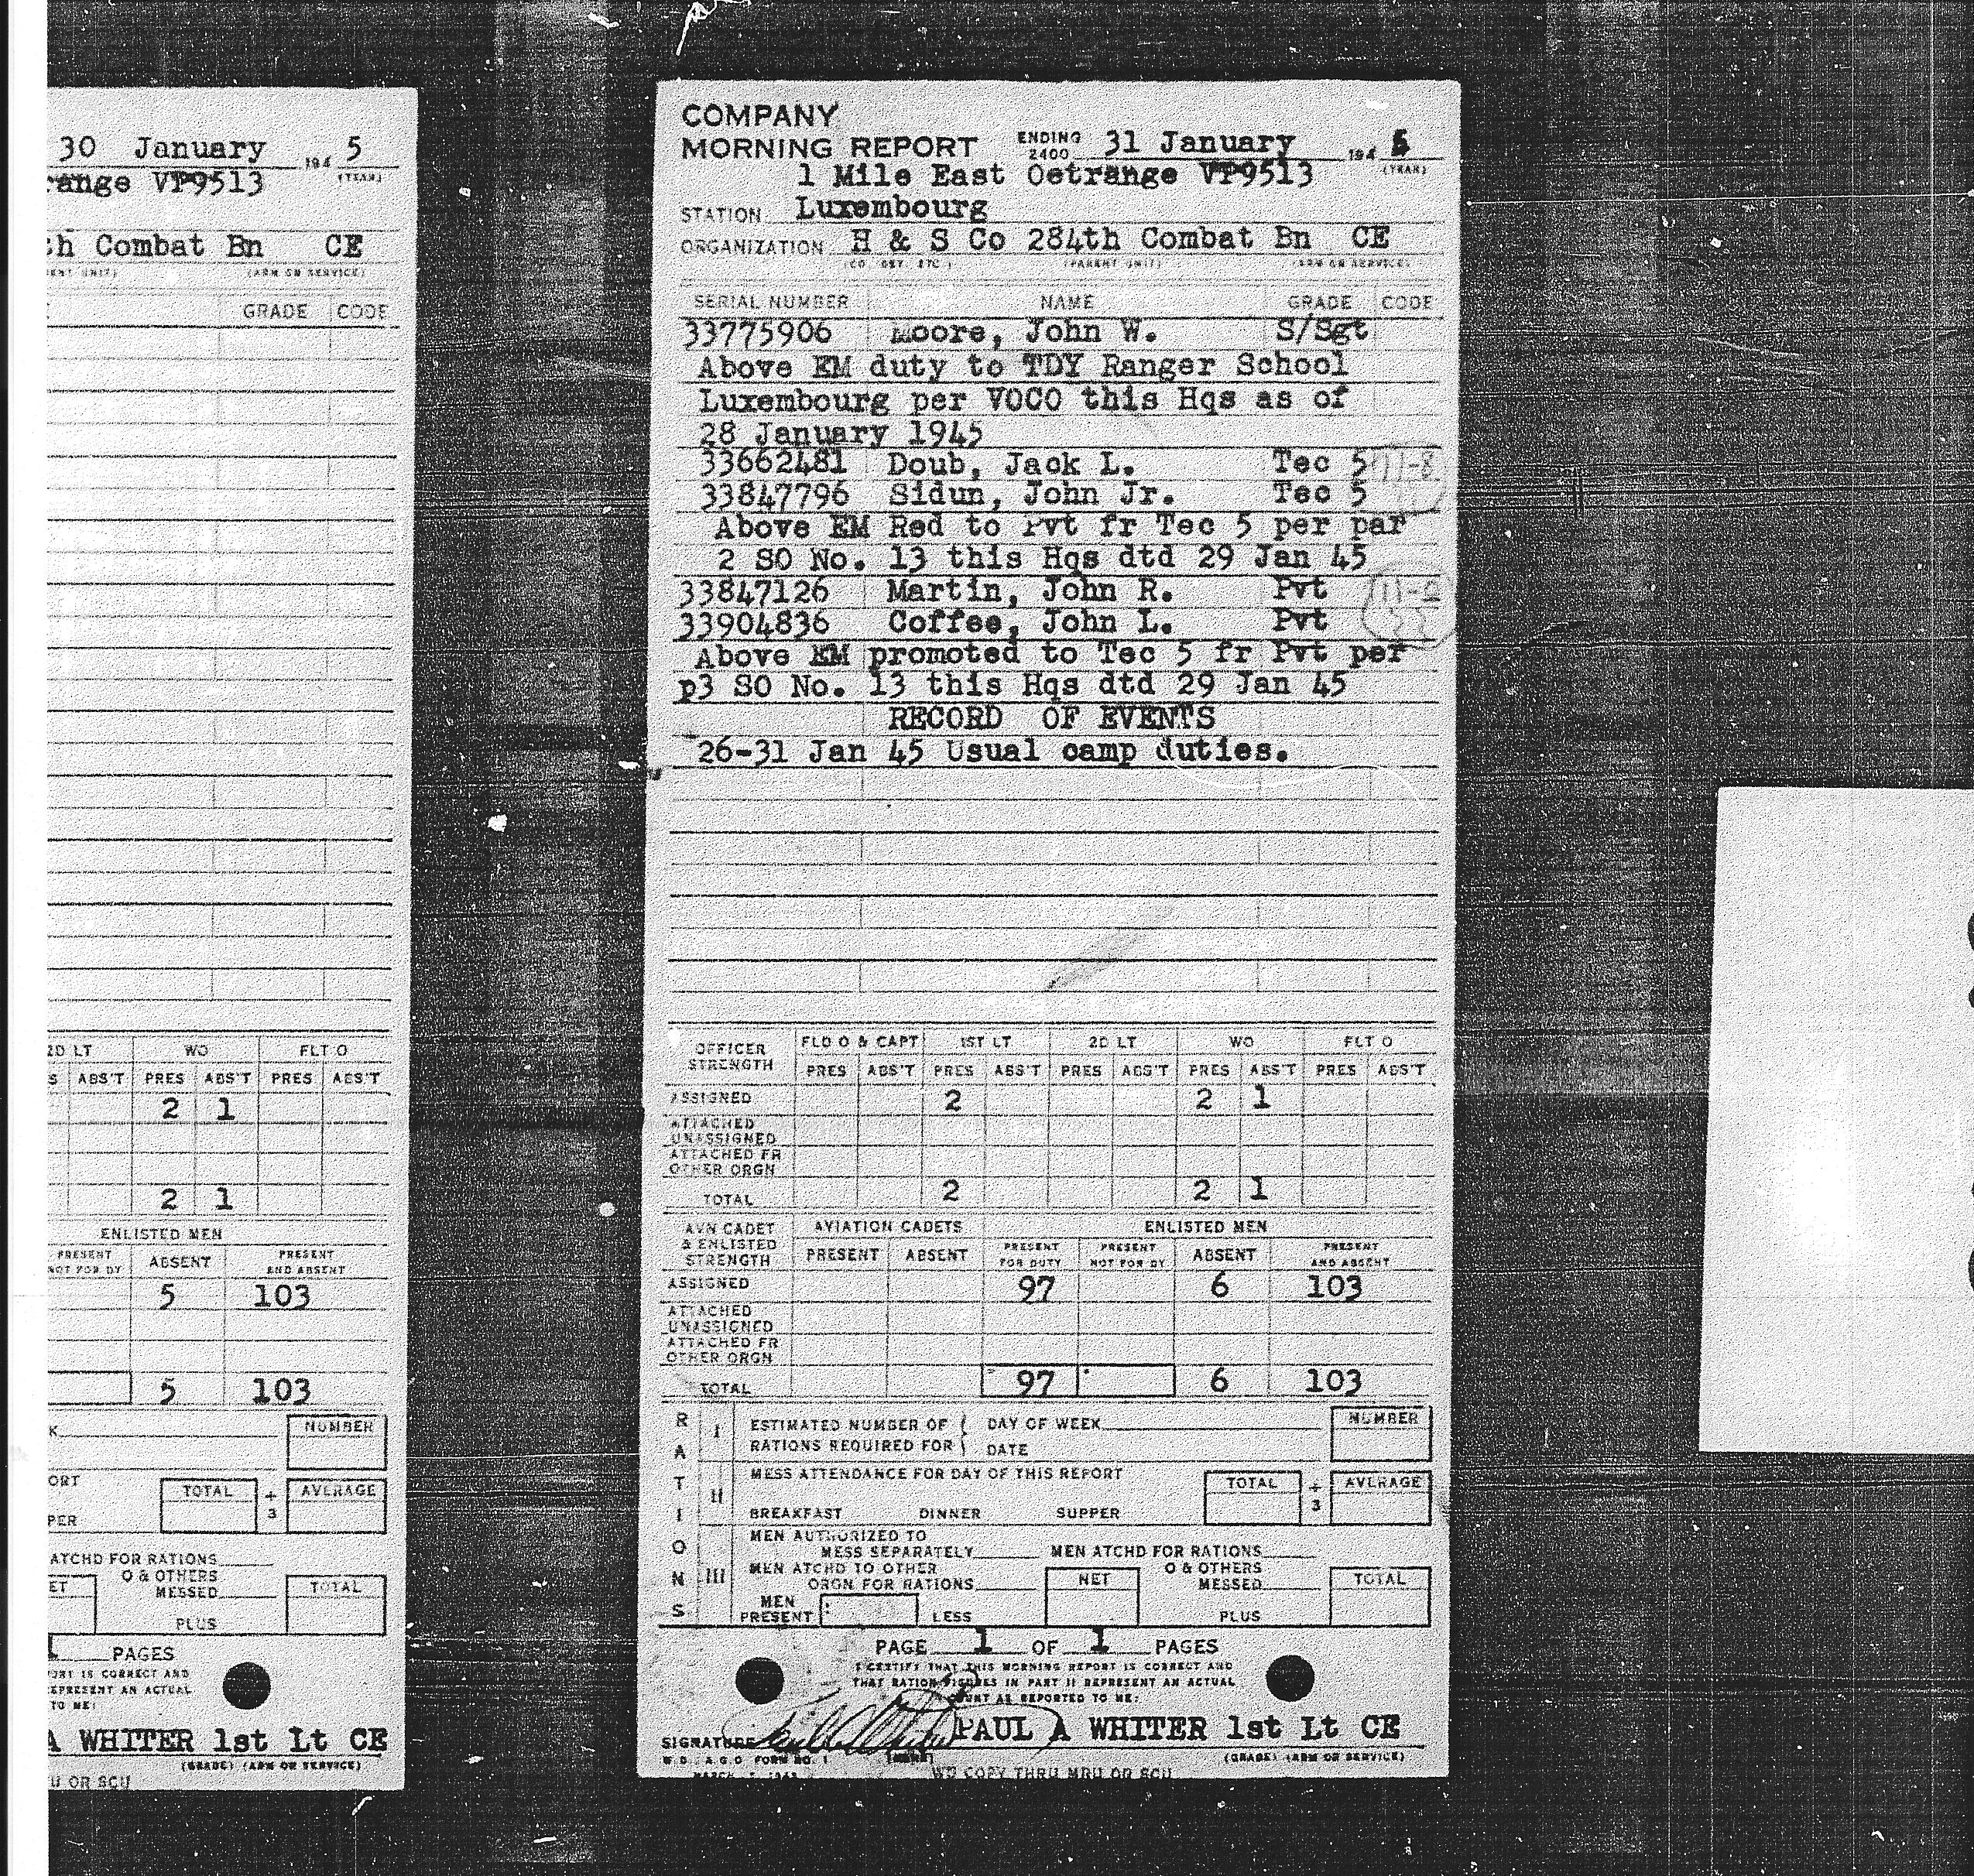 30 January 194 5
(YEAR)
range VP9513
th Combat Bn CE
(PARENT UNIT) (ARM OR SERVICE)
GRADE CODE
2D LT WO FLT O
S ABS'T PRES ABS'T PRES ABS'T
2 1
2 1
ENLISTED MEN
PRESENT NOT FOR DY ABSENT PRESENT AND ABSENT
5 103
5 103
NUMBER
K
ORT
TOTAL ÷ 3 AVERAGE
PER
ATCHD FOR RATIONS
O & OTHERS
MESSED
ET TOTAL
PLUS
1 PAGES
ORT IS CORRECT AND
EPRESENT AN ACTUAL
TO ME:
A WHITER 1st Lt CE
(GRADE) (ARM OR SERVICE)
U OR SCU
COMPANY
MORNING REPORT ENDING 2400 31 January 194 5
(YEAR)
1 Mile East Oetrange VP9513
STATION Luxembourg
ORGANIZATION H & S Co 284th Combat Bn CE
(CO. BTY. ETC.) (PARENT UNIT) (ARM OR SERVICE)
SERIAL NUMBER NAME GRADE CODE
33775906 Moore, John W. S/Sgt
Above EM duty to TDY Ranger School
Luxembourg per VOCO this Hqs as of
28 January 1945
33662481 Doub, Jack L. Tec 5
33847796 Sidun, John Jr. Tec 5
Above EM Red to Pvt fr Tec 5 per par
2 SO No. 13 this Hqs dtd 29 Jan 45
33847126 Martin, John R. Pvt
33904836 Coffee, John L. Pvt
Above EM promoted to Tec 5 fr Pvt per
p3 SO No. 13 this Hqs dtd 29 Jan 45
RECORD OF EVENTS
26-31 Jan 45 Usual camp duties.
OFFICER STRENGTH FLD O & CAPT 1ST LT 2D LT WO FLT O
PRES ABS'T PRES ABS'T PRES ABS'T PRES ABS'T PRES ABS'T
ASSIGNED 2 2 1
ATTACHED UNASSIGNED
ATTACHED FR OTHER ORGN
TOTAL 2 2 1
AVN CADET & ENLISTED STRENGTH AVIATION CADETS ENLISTED MEN
PRESENT ABSENT PRESENT FOR DUTY PRESENT NOT FOR DY ABSENT PRESENT AND ABSENT
ASSIGNED 97 6 103
ATTACHED UNASSIGNED
ATTACHED FR OTHER ORGN
TOTAL 97 6 103
RATIONS
I ESTIMATED NUMBER OF RATIONS REQUIRED FOR { DAY OF WEEK DATE NUMBER
II MESS ATTENDANCE FOR DAY OF THIS REPORT TOTAL ÷ 3 AVERAGE
BREAKFAST DINNER SUPPER
III MEN AUTHORIZED TO MESS SEPARATELY MEN ATCHD FOR RATIONS
MEN ATCHD TO OTHER ORGN FOR RATIONS NET O & OTHERS MESSED TOTAL
MEN PRESENT LESS PLUS
PAGE 1 OF 1 PAGES
I CERTIFY THAT THIS MORNING REPORT IS CORRECT AND
THAT RATION FIGURES IN PART II REPRESENT AN ACTUAL
COUNT AS REPORTED TO ME:
SIGNATURE PAUL A WHITER 1st Lt CE
(NAME) (GRADE) (ARM OR SERVICE)
W.D., A.G.O. FORM NO. 1
WD COPY THRU MRU OR SCU